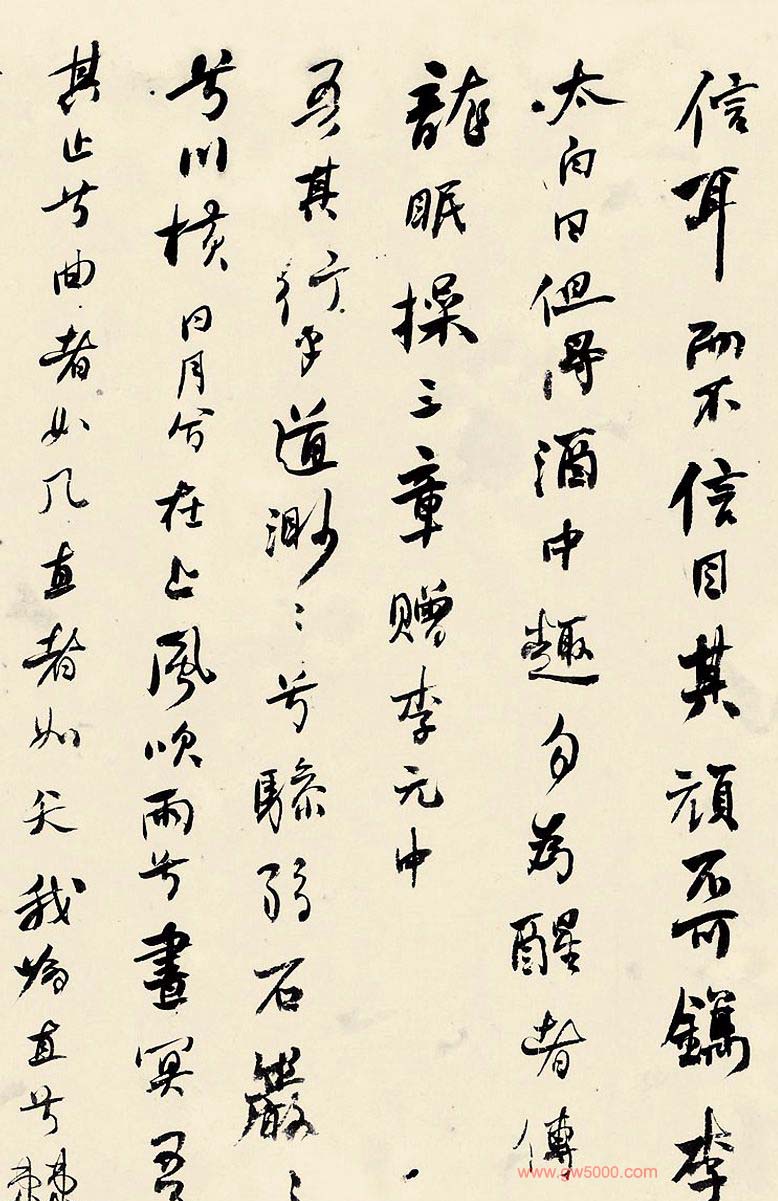 信耳而不信目其頑不可鐫李
太白曰但得酒中趣勿為醒者傳
龍眠操三章贈李元中
吾其行乎道渺〻兮驂弱石巖〻
兮川橫日月兮在上風吹雨兮晝冥吾
其止兮曲者如几直者如矢我為直兮棘
www.gw5000.com